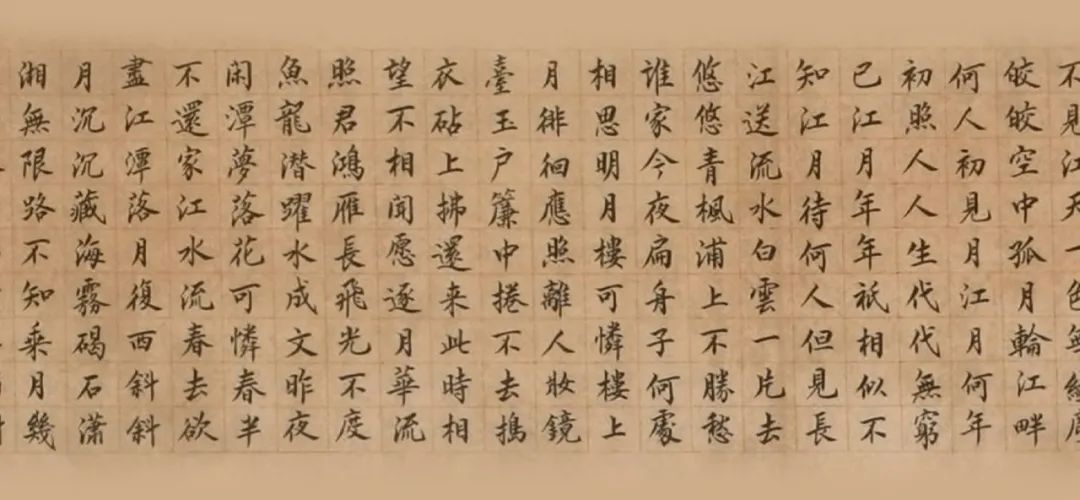 不見江天一色無
皎皎空中孤月輪江畔
何人初見月江月何年
初照人人生代代無窮
已江月年年祇相似不
知江月待何人但見長
江送流水白雲一片去
悠悠青楓浦上不勝愁
誰家今夜扁舟子何處
相思明月樓可憐樓上
月徘徊應照離人妝鏡
臺玉户簾中捲不去搗
衣砧上拂還来此時相
望不相聞愿逐月華流
照君鴻雁長飛光不度
魚龍潜躍水成文昨夜
闲潭夢落花可憐春半
不還家江水流春去欲
盡江潭落月復西斜斜
月沉沉藏海霧碣石潇
湘無限路不知乘月幾